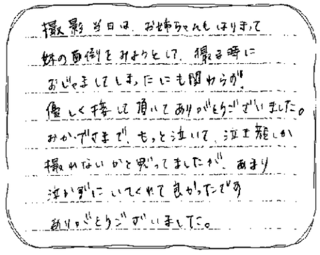 撮影当日は、お姉ちゃんもはりきって
妹の面倒をみようとして、撮る時に
おじゃましてしまったにも関わらず
優しく接して頂いてありがとうございました。
おかげさまで、もっと泣いて、泣き顔しか
撮れないかと思ってましたが、あまり
泣かずにいてくれて良かったです
ありがとうございました。